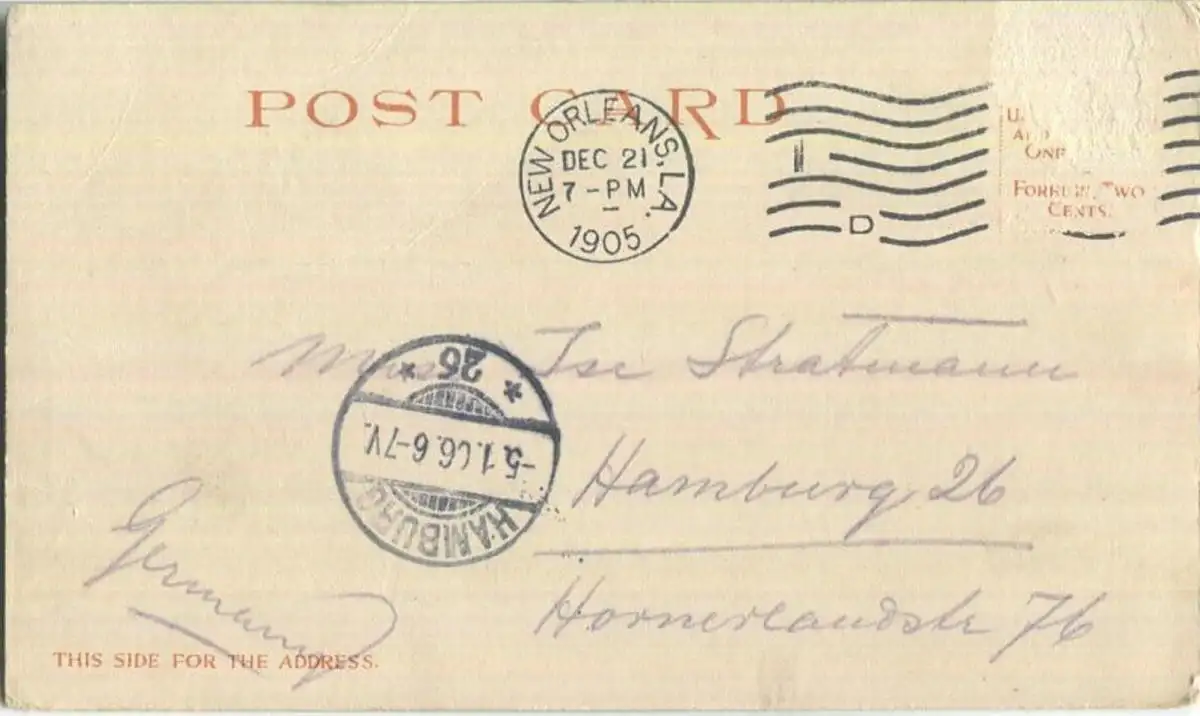 POST CARD
NEW ORLEANS, LA.
DEC 21
7-PM
1905
D
U.
ONE
FOREIGN, TWO
CENTS.
Stratmann
26
-5.1.06.6-7V.
HAMBURG
Hamburg 26
Hornerlandstr 76
Germany
THIS SIDE FOR THE ADDRESS.